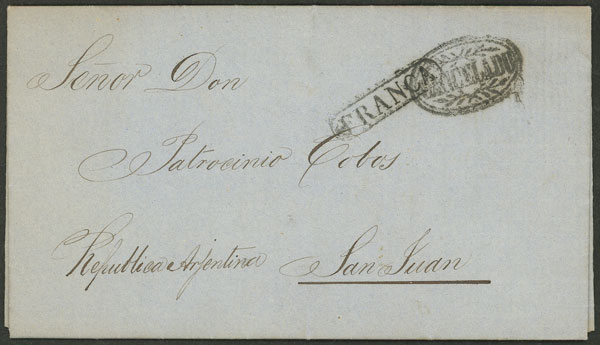 Señor Don
FRANCA
CANCELADO
Patrocinio Cobos
Republica Arjentina San Juan